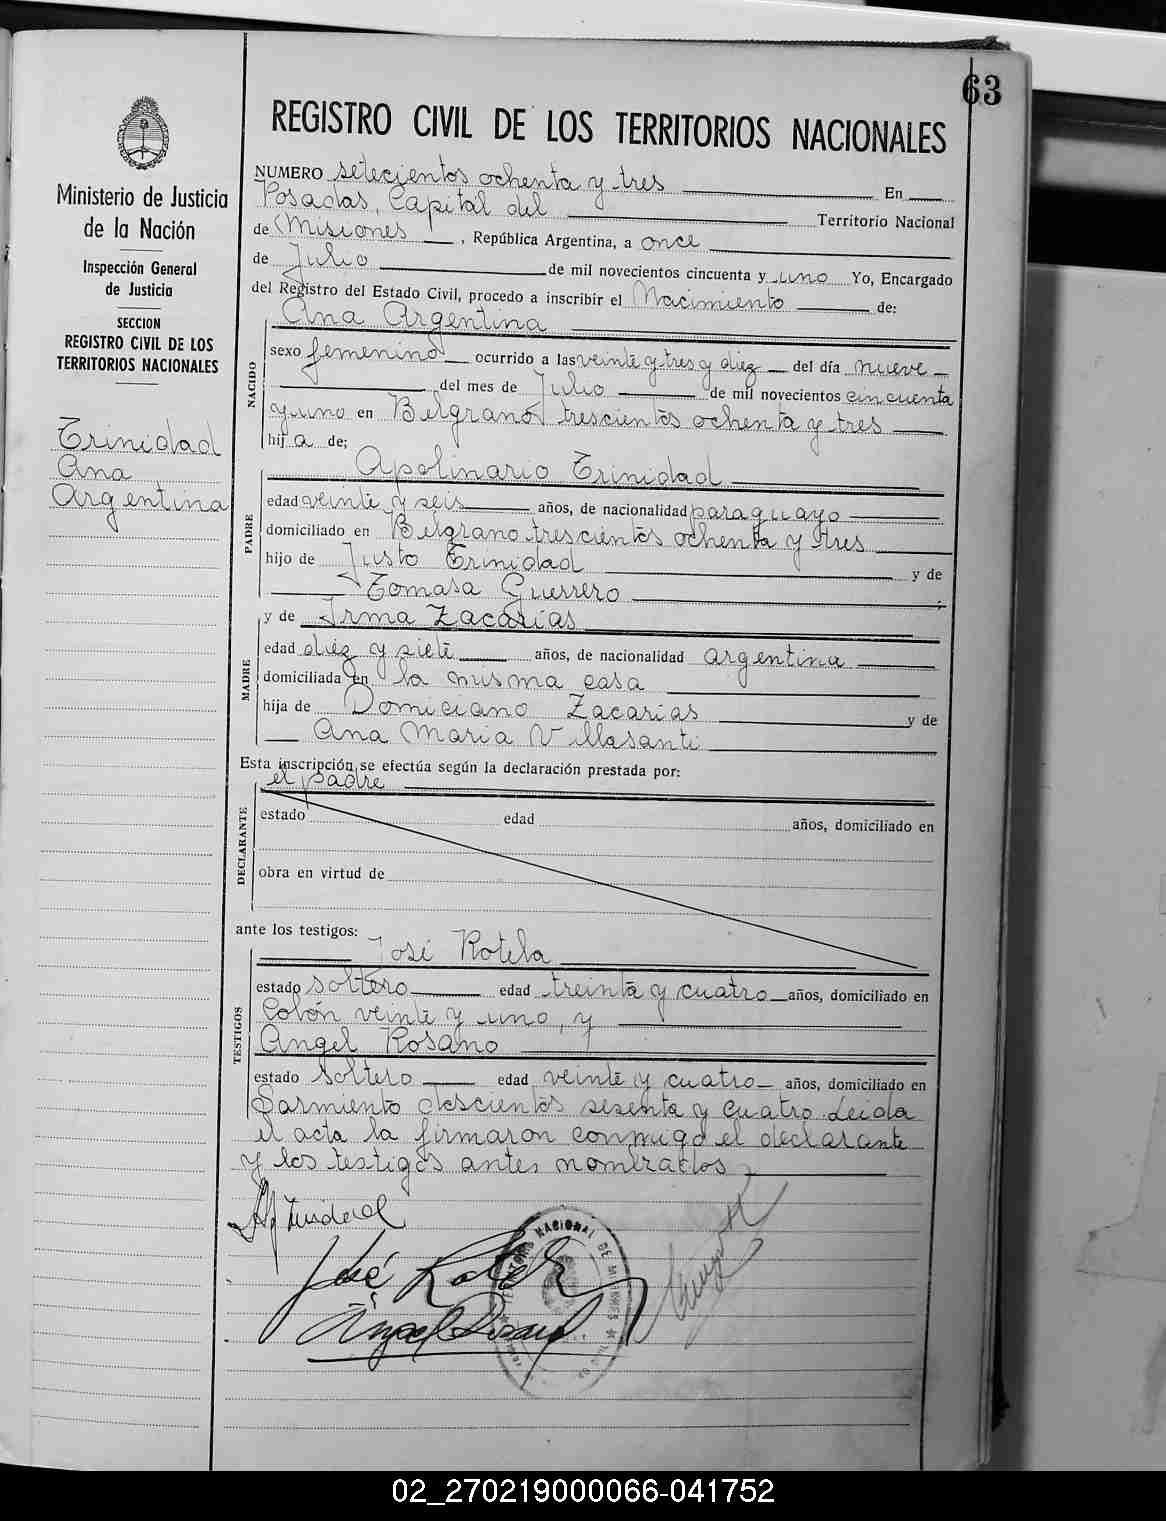 63
REGISTRO CIVIL DE LOS TERRITORIOS NACIONALES
Ministerio de Justicia
de la Nación
Inspección General
de Justicia
SECCION
REGISTRO CIVIL DE LOS
TERRITORIOS NACIONALES
Trinidad
Ana
Argentina
NUMERO setecientos ochenta y tres En
Posadas, Capital del Territorio Nacional
de Misiones, República Argentina, a once
de Julio de mil novecientos cincuenta y uno Yo, Encargado
del Registro del Estado Civil, procedo a inscribir el Nacimiento de:
Ana Argentina
NACIDO
sexo femenino ocurrido a las veinte y tres y diez del día nueve
del mes de Julio de mil novecientos cincuenta
y uno en Belgrano trescientos ochenta y tres
hij a de;
Apolinario Trinidad
PADRE
edad veinte y seis años, de nacionalidad paraguayo
domiciliado en Belgrano trescientos ochenta y tres
hijo de Justo Trinidad y de
Tomasa Guerrero ;
y de Irma Zacarías
MADRE
edad diez y siete años, de nacionalidad argentina
domiciliada en la misma casa
hija de Domiciano Zacarias y de
Ana Maria Villasanti
Esta inscripción se efectúa según la declaración prestada por:
el padre
DECLARANTE
estado edad años, domiciliado en
obra en virtud de
ante los testigos:
José Rotela
TESTIGOS
estado soltero edad treinta y cuatro años, domiciliado en
Colón veinte y uno, y
Angel Rosano
estado soltero edad veinte y cuatro años, domiciliado en
Sarmiento doscientos sesenta y cuatro. Leida
el acta la firmaron conmigo el declarante
y los testigos antes nombrados
Ap Trinidad
José Rotela
Angel Rosano
TERRITORIO NACIONAL DE MISIONES
02_270219000066-041752